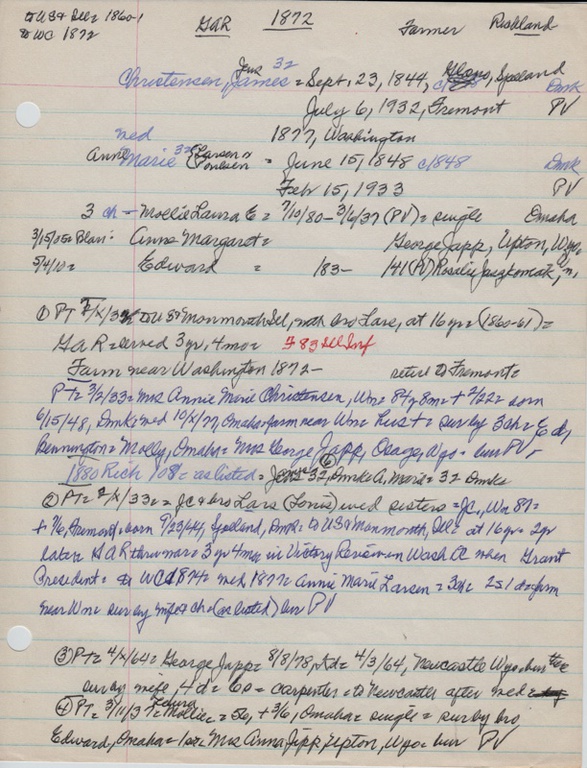 to US & Ill = 1860-1 GAR 1872 Farmer Richland
to WC 1872
Jens 32
Christensen, James = Sept. 23, 1844, c/1848 Spelland Dmk
July 6, 1932, Fremont PV
med 1877, Washington
Anne Marie 32 Larsen or Poulsen = June 15, 1848 c/1848 Dmk
Feb 15, 1933 PV
3 ch = Mollie Laura E = 7/10/80 - 3/6/37 (PV) = single Omaha
3/15/05 = Blair: Anna Margaret = George Japp, Upton, Wyo.
5/4/10 = Edward = 183- 141 (PV) Rosalie
① PT = /X/32 to US Monmouth Ill, with bro Lars, at 16 yr = (1860-61) =
GAR = served 3 yr, 4 mo = F 83 Ill Inf
Farm near Washington 1872 - retire to Fremont =
PT = 3/2/33 = Mrs Annie Marie Christensen, Wn = 84 y 8 m = + 2/22 = born
6/15/48, Dmk = med 10/X/77, Omaha = farm near Wn = husb + = surv by 3 ch = Ed,
Bennington = Molly, Omaha = Mrs George Japp, Osage, Wyo = bur PV -
1880 Rich 108 = as listed = Jens 32, Dmk & A. Marie = 32 Dmk
② PT = /X/33 = JC & bro Lars (Louis) wed sisters = JC, Wn 87 =
+ 7/6, Fremont = born 9/23/44, Spelland, Dmk = to US & Monmouth, Ill = at 16 yr = 2 yr
later = GAR thru war = 3 yr 4 mo = in Victory Review in Wash DC when Grant
President = to WC 1874 = med 1877 = Annie Marie Larsen = 3 ch = 2s 1d = farm
near Wn = surv by wife & ch = (as listed) bur PV
③ PT = 4/X/64 = George Japp = 8/8/78, d = 4/3/64, Newcastle Wyo = bur there
surv by wife, 4 d = 60 = carpenter = to Newcastle after med =
④ PT = 3/11/37 = Laura Mollie = 56, + 3/6, Omaha = single = surv by bro
Edward, Omaha = 1 sr = Mrs Anna Japp, Upton, Wyo = bur PV